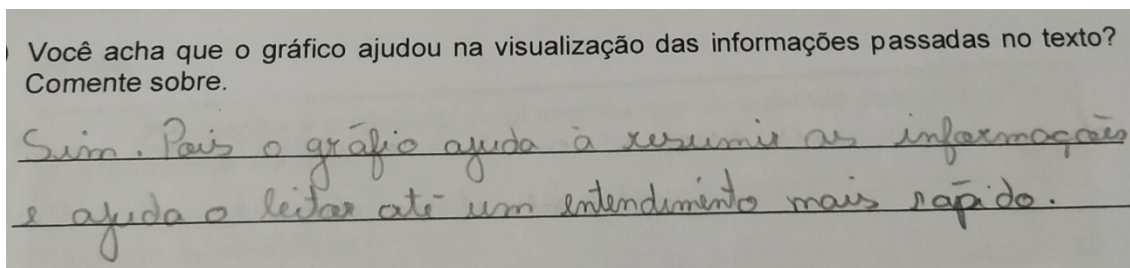 Você acha que o gráfico ajudou na visualização das informações passadas no texto?
Comente sobre.
Sim. Pois o gráfio ajuda à resumir as informações
e ajuda o leitor até um entendimento mais rápido.